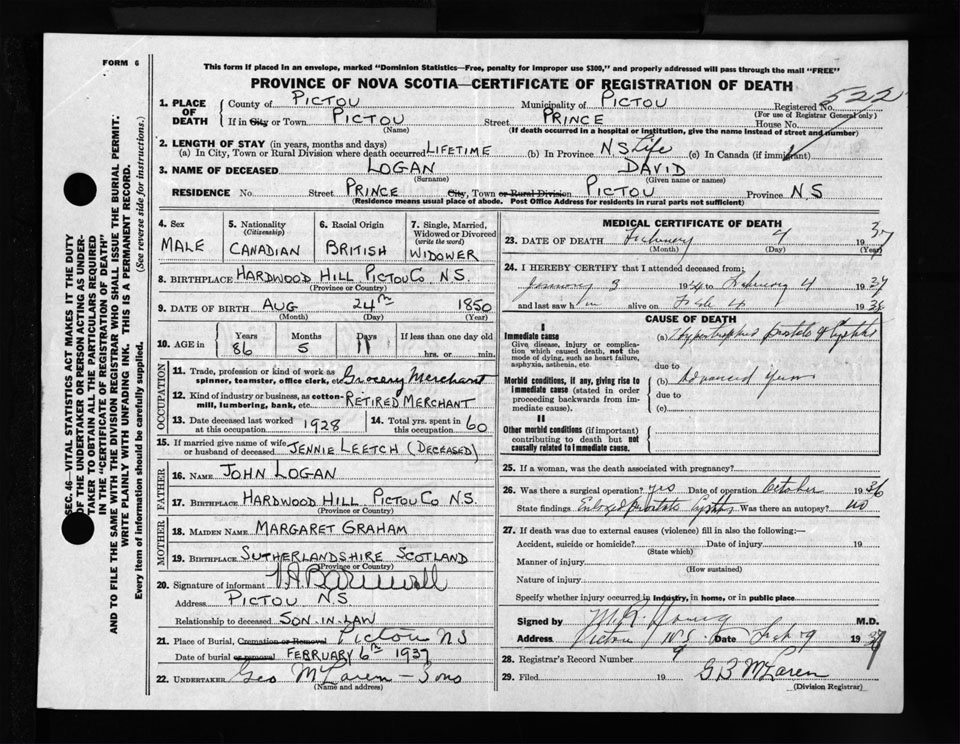 FORM 6
This form if placed in an envelope, marked "Dominion Statistics—Free, penalty for improper use $300," and properly addressed will pass through the mail "FREE"
PROVINCE OF NOVA SCOTIA—CERTIFICATE OF REGISTRATION OF DEATH
1. PLACE OF DEATH County of PICTOU Municipality of PICTOU Registered No. 522
(For use of Registrar General only)
If in City or Town PICTOU Street PRINCE House No.
(Name) (If death occurred in a hospital or institution, give the name instead of street and number)
2. LENGTH OF STAY (in years, months and days)
(a) In City, Town or Rural Division where death occurred LIFETIME (b) In Province N.S. Life (c) In Canada (if immigrant)
3. NAME OF DECEASED LOGAN DAVID
(Surname) (Given name or names)
RESIDENCE No. Street PRINCE City, Town or Rural Division PICTOU Province N.S
(Residence means usual place of abode. Post Office Address for residents in rural parts not sufficient)
4. Sex MALE
5. Nationality (Citizenship) CANADIAN
6. Racial Origin BRITISH
7. Single, Married, Widowed or Divorced (write the word) WIDOWER
8. BIRTHPLACE HARDWOOD HILL PICTOU CO N.S.
(Province or Country)
9. DATE OF BIRTH AUG 24TH 1850
(Month) (Day) (Year)
10. AGE in Years 86 Months 5 Days 11 If less than one day old hrs. or min.
OCCUPATION
11. Trade, profession or kind of work as spinner, teamster, office clerk, etc. Grocery Merchant
12. Kind of industry or business, as cotton-mill, lumbering, bank, etc. RETIRED MERCHANT
13. Date deceased last worked at this occupation 1928
14. Total yrs. spent in this occupation 60
15. If married give name of wife or husband of deceased JENNIE LEETCH (DECEASED)
FATHER
16. Name JOHN LOGAN
17. Birthplace HARDWOOD HILL PICTOU CO N.S.
(Province or Country)
MOTHER
18. Maiden Name MARGARET GRAHAM
19. Birthplace SUTHERLANDSHIRE SCOTLAND
(Province or Country)
20. Signature of informant
Address PICTOU N.S.
Relationship to deceased SON-IN-LAW
21. Place of Burial, Cremation or Removal Pictou NS
Date of burial or removal FEBRUARY 6TH 1937
22. UNDERTAKER Geo McLaren - Sons
(Name and address)
MEDICAL CERTIFICATE OF DEATH
23. DATE OF DEATH February 1937
(Month) (Day) (Year)
24. I HEREBY CERTIFY that I attended deceased from:
January 3 to February 4 1937
and last saw him alive on Feb 4 19
CAUSE OF DEATH
I
Immediate cause
Give disease, injury or complication which caused death, not the mode of dying, such as heart failure, asphyxia, asthenia, etc
(a) prostate & Cystitis
due to
Morbid conditions, if any, giving rise to immediate cause (stated in order proceeding backwards from immediate cause).
(b) Advanced Years
due to
(c)
II
Other morbid conditions (if important) contributing to death but not causally related to immediate cause.
25. If a woman, was the death associated with pregnancy?
26. Was there a surgical operation? yes Date of operation October 1936
State findings Enlarged Prostate Cystitis Was there an autopsy? no
27. If death was due to external causes (violence) fill in also the following:—
Accident, suicide or homicide? Date of injury 19
(State which)
Manner of injury
(How sustained)
Nature of injury
Specify whether injury occurred in industry, in home, or in public place
Signed by M.D.
Address Pictou N.S. Date Feb 9 1937
28. Registrar's Record Number 9
29. Filed 19 G B McLaren
(Division Registrar)
SEC. 46—VITAL STATISTICS ACT MAKES IT THE DUTY
OF THE UNDERTAKER OR PERSON ACTING AS UNDERTAKER TO OBTAIN ALL THE PARTICULARS REQUIRED
IN THE "CERTIFICATE OF REGISTRATION OF DEATH"
AND TO FILE THE SAME WITH THE DIVISION REGISTRAR WHO SHALL ISSUE THE BURIAL PERMIT.
WRITE PLAINLY WITH UNFADING INK. THIS IS A PERMANENT RECORD.
Every item of information should be carefully supplied. (See reverse side for instructions.)